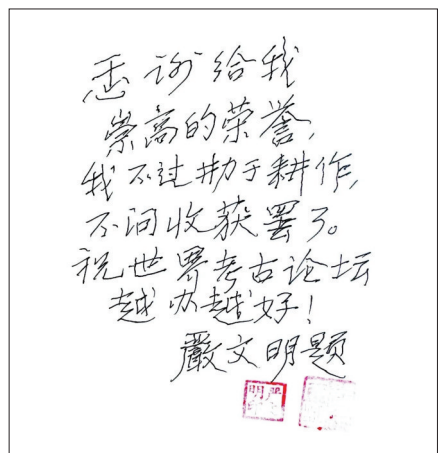 感谢给我
崇高的荣誉，
我不过勤于耕作，
不问收获罢了。
祝世界考古论坛
越办越好！
嚴文明题